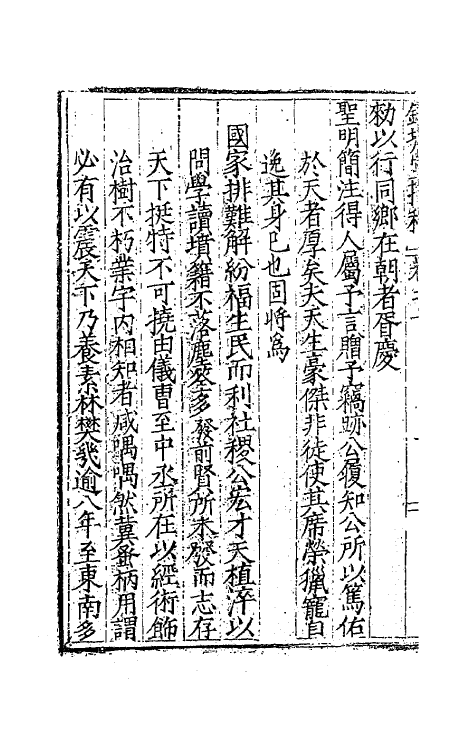 勑以行同鄉在朝者胥慶
聖明簡注得人屬予言贈予竊跡公復知公所以篤佑
於天者厚矣夫天生豪傑非徒使其席榮獵寵自
逸其身已也固將爲
國家排難解紛福生民而利社稷公宏才天植淬以
問學讀墳籍不落塵壑多發前賢所未發而志存
天下挺特不可撓由儀曹至中丞所在以經術飾
治樹不朽業宇內相知者咸隅隅然冀釜柄用謂
必有以震天下乃養素林樊幾逾八年至東南多